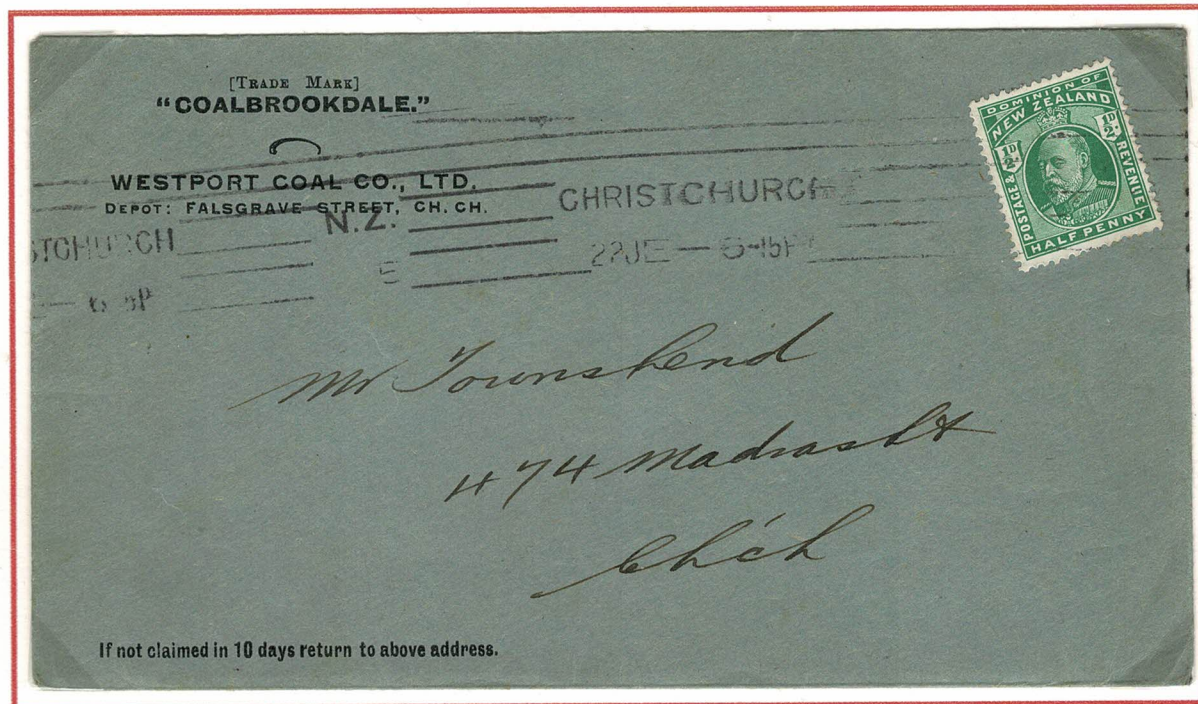 [TRADE MARK]
"COALBROOKDALE."
WESTPORT COAL CO., LTD.
DEPOT: FALSGRAVE STREET, CH. CH.
N.Z.
STCHURCH
E
CHRISTCHURCH
22JE — 5-15P
DOMINION OF
NEW ZEALAND
½D
½D
POSTAGE & REVENUE
HALF PENNY
Mr Townshend
474 Madras St
Ch'ch
If not claimed in 10 days return to above address.